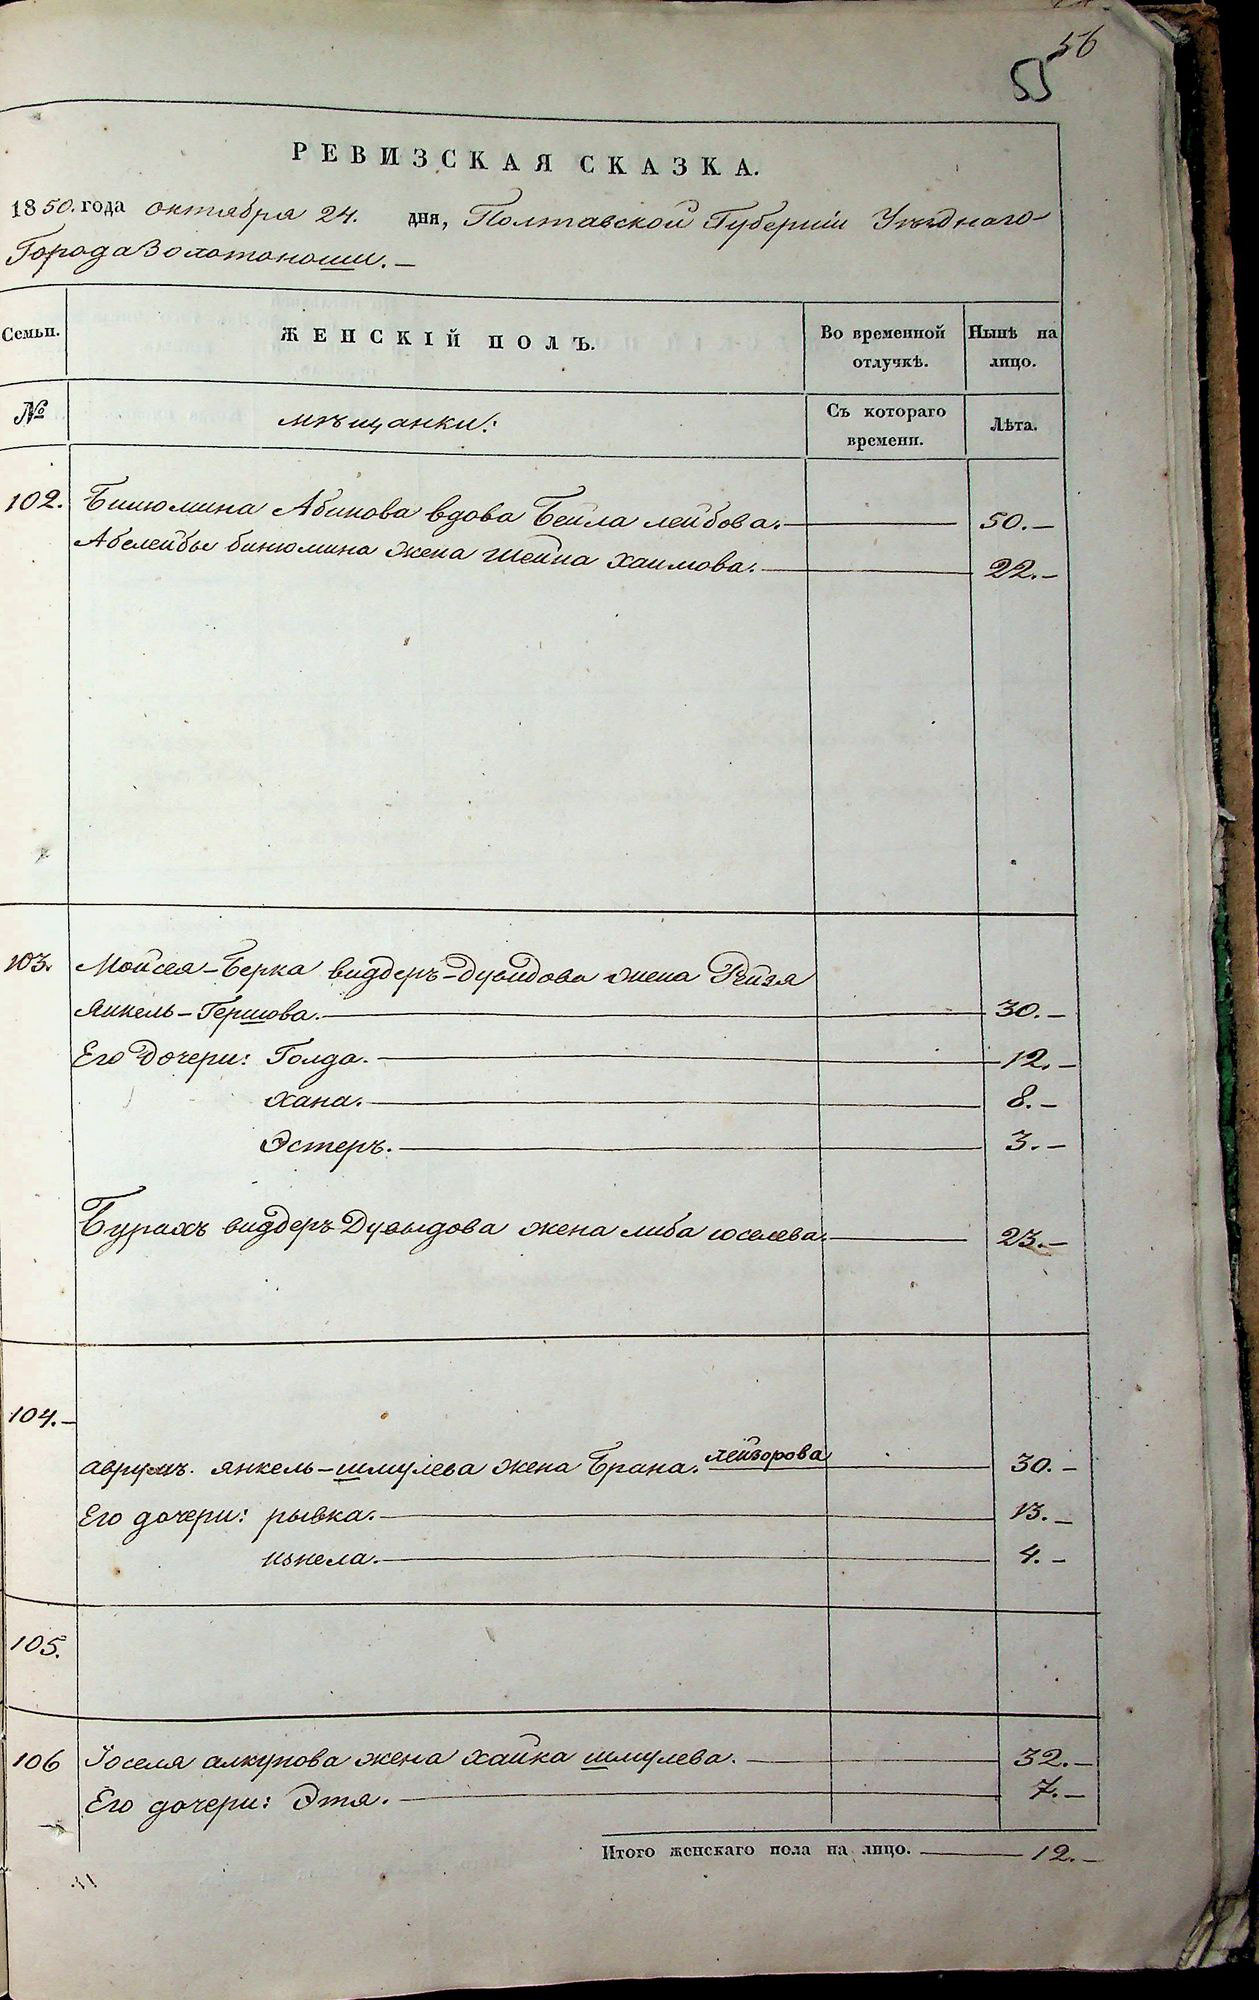 56
55
РЕВИЗСКАЯ СКАЗКА.
1850. года октября 24. дня, Полтавской Губерніи Уѣзднаго
Города Золотоноши.
Семьи. ЖЕНСКІЙ ПОЛЪ. Во временной отлучкѣ. Нынѣ на лицо.
№ мѣщанки: Съ котораго времени. Лѣта.
102. Бинюмина Абинова вдова Бейла лейбова. 50.
Абелейбы бинюмина жена шейна хаимова. 22.
103. Мойсея-Берка видберъ-Дувидова жена Рейзя
янкель-Гершова. 30.
Его Дочери: Голда. 12.
хана. 8.
Эстеръ. 3.
Бурихъ видберъ Дувыдова жена либа юселева. 23.
104.
аврумъ. янкель-шмулева жена Брана. лейзорова 30.
Его дочери: рывка. 13.
4.
105.
106 Іоселя алкунова жена хайка шмулева. 32.
Его дочери: Этя. 7.
Итого женскаго пола на лицо. 12.